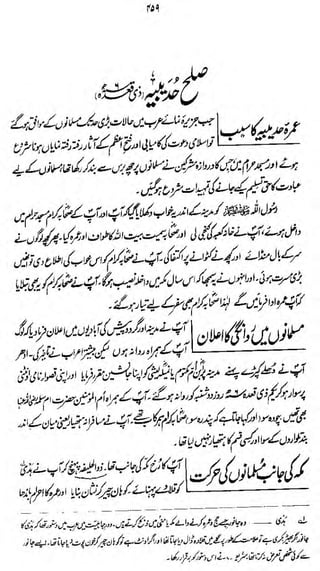 ۴۵۹
صلح حُدَیبیہ (ذی قعدہ ۶ھ)
عمرۂ حدیبیہ کا سبب
جب جزیرہ نمائے عرب میں حالات بڑی حد تک مسلمانوں کے موافق ہو گئے
تو اسلامی دعوت کی کامیابی اور فتح اعظم کے آثار رفتہ رفتہ نمایاں ہونا شروع
ہوئے اور مسجد حرام میں جس کا دروازہ مشرکین نے مسلمانوں پر چھ برس سے بند کر رکھا تھا مسلمانوں کے لیے
عبادت کا حق تسلیم کیے جانے کی تمہیدات شروع ہو گئیں۔
رسول اللہ ﷺ کو مدینہ کے اندر یہ خواب دکھلایا گیا کہ آپ اور آپ کے صحابہ کرام مسجد حرام میں
داخل ہوئے، آپ نے خانہ کعبہ کی کنجی لی اور صحابہ سمیت بیت اللہ کا طواف اور عمرہ کیا۔ پھر کچھ لوگوں نے
سر کے بال منڈائے اور کچھ نے کٹوانے پر اکتفا کی۔ آپ نے صحابہ کرام کو اس خواب کی اطلاع دی تو انھیں
بڑی مسرت ہوئی، اور انھوں نے یہ سمجھا کہ اس سال مکہ میں داخلہ نصیب ہوگا، آپ نے صحابہ کرام کو یہ بھی بتلایا
کہ آپ عمرہ ادا فرمائیں گے لہٰذا صحابہ کرام بھی سفر کے لیے تیار ہو گئے۔
مسلمانوں میں روانگی کا اعلان
آپ نے مدینہ اور گرد و پیش کی آبادیوں میں اعلان فرما دیا کہ لوگ
آپ کے ہمراہ روانہ ہوں لیکن بیشتر اعراب نے تاخیر کی۔ ادھر
آپ نے دھلے کپڑے پہنے، مدینہ پر ابن ام مکتوم یا نمیلہ لیثی کو اپنا جانشین مقرر فرمایا اور اپنی قصواء نامی اونٹنی
پر سوار ہو کر یکم ذی قعدہ ۶ھ روز دوشنبہ کو روانہ ہو گئے۔ آپ کے ہمراہ ام المؤمنین حضرت ام سلمہ رضی اللہ عنہا
بھی تھیں چودہ سو اور کہا جاتا ہے کہ پندرہ سو صحابہ کرام ہم رکاب تھے۔ آپ نے مسافرانہ ہتھیار یعنی میان کے اندر
بند تلواروں کے سوا اور کسی قسم کا ہتھیار نہیں لیا تھا۔
مکہ کی جانب مسلمانوں کی حرکت
آپ کا رخ مکہ کی جانب تھا۔ ذوالحلیفہ پہنچ کر آپ نے ہدی
کو قلادے پہنائے، کوہان چیر کر نشان بنایا اور عمرہ کا احرام باندھا